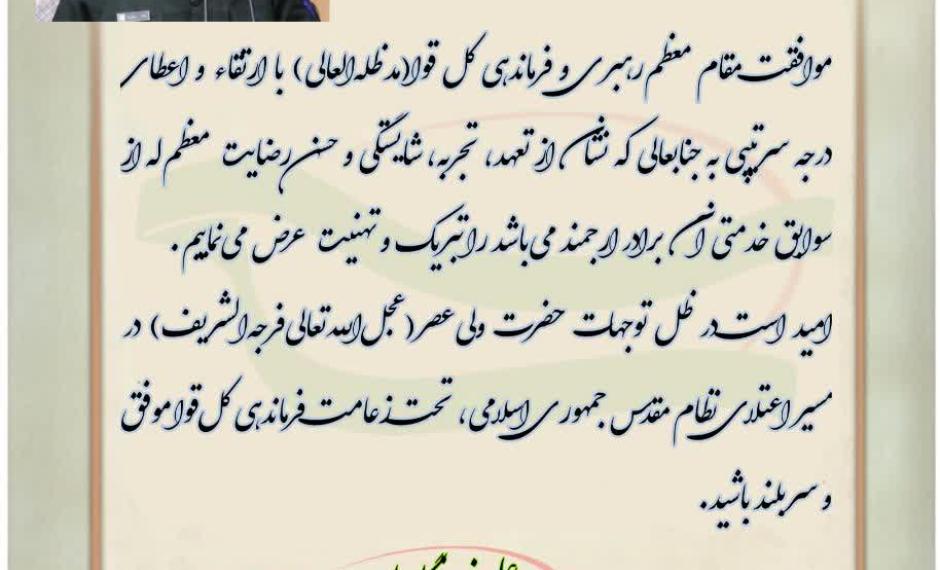 موافقت مقام معظم رهبری و فرماندهی کل قوا(مدظله‌العالی) با ارتقاء و اعطای
درجه سرتیپی به جنابعالی که نشان از تعهد، تجربه، شایستگی و حسن رضایت معظم له از
سوابق خدمتی آن برادر ارجمند می‌باشد را تبریک و تهنیت عرض می‌نماییم.
امید است در ظل توجهات حضرت ولی عصر(عجل الله تعالی فرجه الشریف) در
مسیر اعتلای نظام مقدس جمهوری اسلامی، تحت زعامت فرماندهی کل قوا موفق
و سربلند باشید.